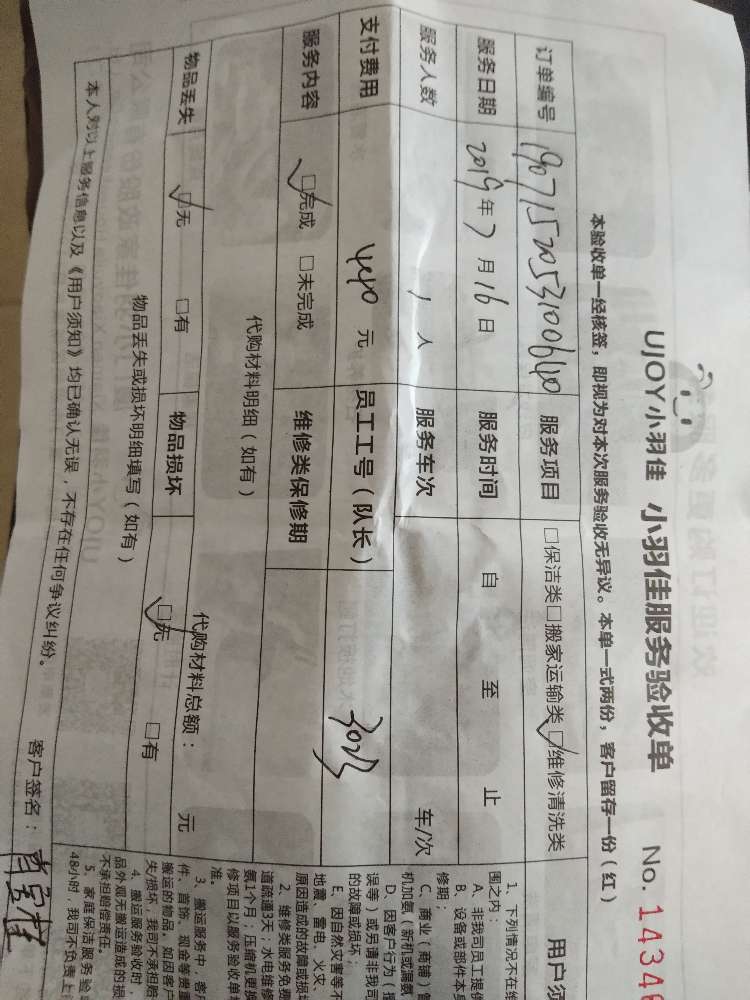 UJOY小羽佳 小羽佳服务验收单 No. 14346
本验收单一经核签，即视为对本次服务验收无异议。本单一式两份，客户留存一份（红）
订单编号 190715205310064 服务项目 □保洁类□搬家运输类□维修清洗类
服务日期 2019年7月16日 服务时间 自 至 止
服务人数 1 人 服务车次 车/次
支付费用 元 员工工号（队长）
服务内容 □完成 □未完成 维修类保修期
代购材料明细（如有） 代购材料总额： 元
物品丢失 □无 □有 物品损坏 □无 □有
物品丢失或损坏明细填写（如有）
本人对以上服务信息以及《用户须知》均已确认无误，不存在任何争议纠纷。 客户签名：
用户须
1、下列情况不在维
围之内：
A、非我司员工提供
B、设备或部件本身
修期；
C、商业（商铺）管
机加氨（新机或漏氨
D、因客户行为（擅
误等）或另请非我司
的故障或损坏；
E、因自然灾害等不
地震、雷电、火灾、
原因造成的故障或损坏
2、维修类服务免费
道疏通3天；水电维修
氨1个月；压缩机更换
修项目以服务验收单
准。
3、搬运服务中，客户
件、首饰、现金等贵重
搬运的物品。如因客户
失/损坏，我司不承担赔
4、搬运服务验收时，
品外观无搬运造成的损
不承担赔偿责任。
5、家庭保洁服务验
48小时，我司不负责上